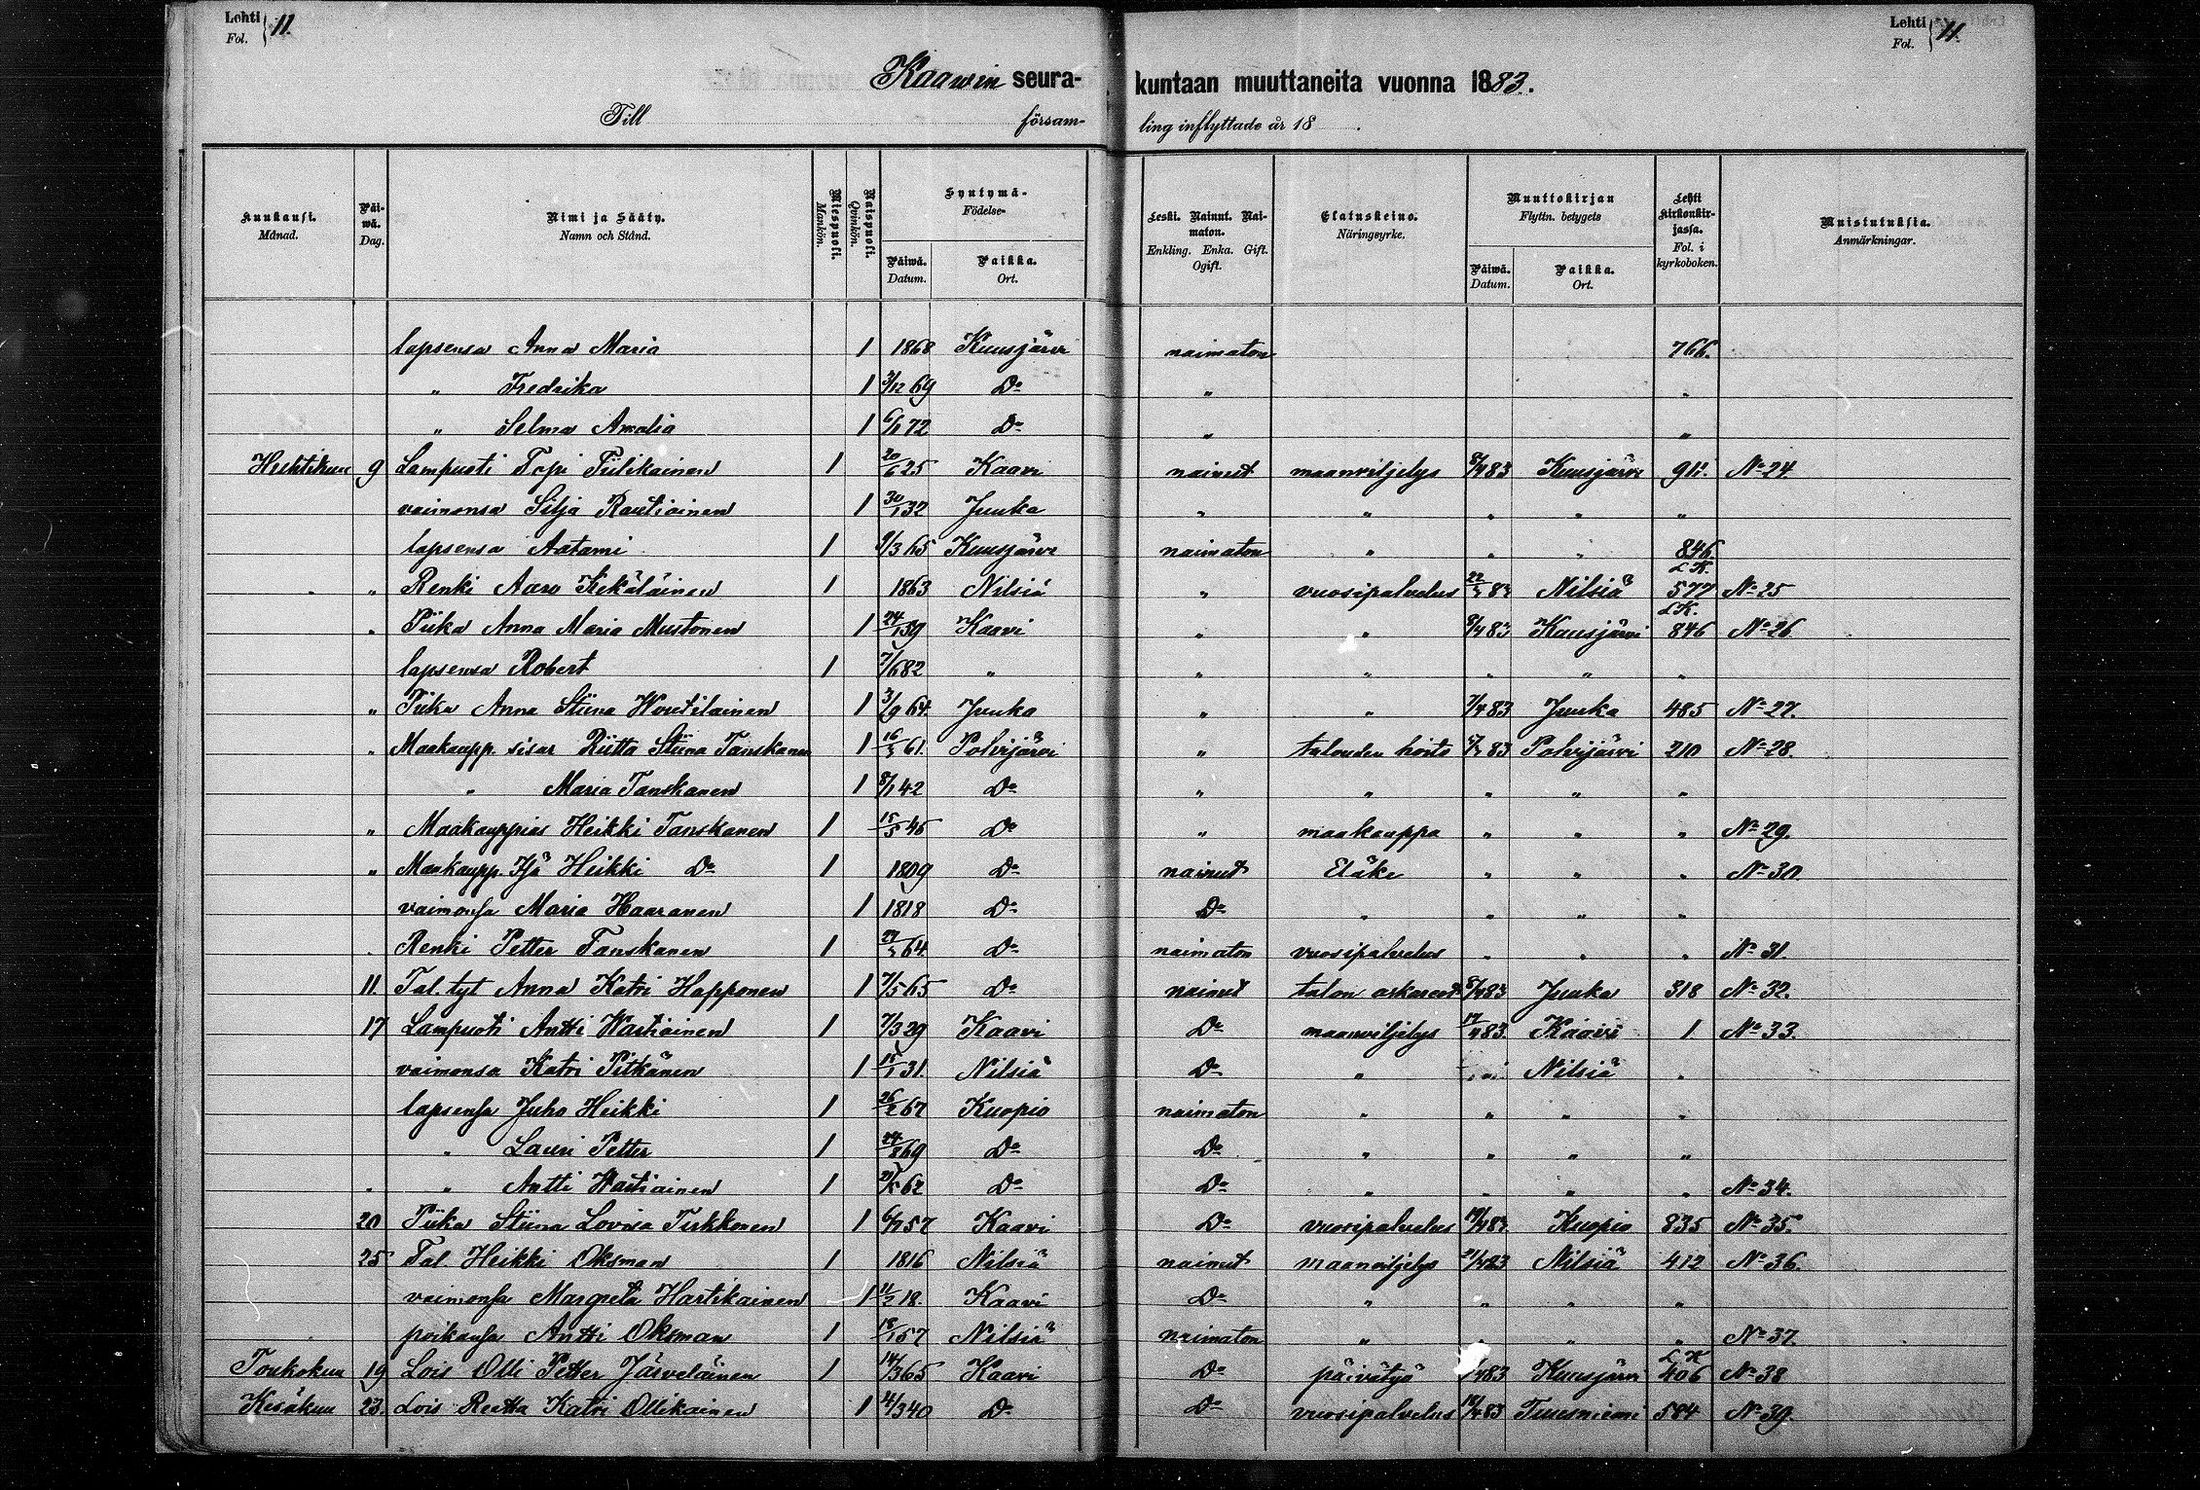 Lehti Fol. 11.
Lehti Fol. 11.
Kaawin seura- kuntaan muuttaneita vuonna 1883.
Till försam- ling inflyttade år 18 .
Kuukausi. Månad.
Päi- wä. Dag.
Nimi ja Sääty. Namn och Stånd.
Miespuoli. Mankön.
Naispuoli. Qvinkön.
Syntymä- Födelse-
Päiwä. Datum.
Paikka. Ort.
Leski. Nainut. Nai- maton. Enkling. Enka. Gift. Ogift.
Elatuskeino. Näringsyrke.
Muuttokirjan Flyttn. betygets
Päiwä. Datum.
Paikka. Ort.
Lehti kirkonkir- jassa. Fol. i kyrkoboken.
Muistutuksia. Anmärkningar.
lapsensa Anna Maria 1 1868 Kuusjärvi naimaton 766.
" Fredrika 1 3/12 69 Do " "
" Selma Amalia 1 6/1 72 Do " "
Huhtikuu 9 Lampuoti Topi Tiilikainen 1 20/6 25 Kaavi nainut maanviljelys 8/4 83 Kuusjärvi 911. No 24.
vaimonsa Silja Rautiainen 1 30/1 32 Juuka " " " " "
lapsensa Aatami 1 9/3 65 Kuusjärvi naimaton " " " 846.
" Renki Aaro Kekäläinen 1 1863 Nilsiä " vuosipalvelus Nilsiä L.K. 577 No 25
" Piika Anna Maria Mustonen 1 24/1 39 Kaavi " " 8/4 83 Kuusjärvi L.K. 846 No 26
lapsensa Robert 1 7/6 82 " " " " " "
" Piika Anna Stiina Woutilainen 1 3/9 64. Juuka " " 7/4 83 Juuka 485 No 27.
" Maakaupp. sisar Riitta Stiina Tanskanen 1 61. Polvijärvi " talouden hoito 83 Polvijärvi 210 No 28.
" Maria Tanskanen 1 8/1 42 Do " " " " "
" Maakauppias Heikki Tanskanen 1 15/5 46 Do " maakauppa " " " No 29.
" Maakaupp. Isä Heikki Do 1 1809 Do nainut Eläke " " " No 30.
vaimonsa Maria Haaranen 1 1818 Do Do " " " "
" Renki Petter Tanskanen 1 64. Do naimaton vuosipalvelus " " " No 31.
11. Tal. tyt Anna Katri Happonen 1 7/5 65 Do nainut talon askareet 83 Juuka 318 No 32.
17 Lampuoti Antti Wartiainen 1 7/3 29 Kaavi Do maanviljelys 17/4 83. Kaavi 1 No 33.
vaimonsa Katri Pitkänen 1 15/1 31. Nilsiä Do " Nilsiä "
lapsensa Juho Heikki 1 26/2 67 Kuopio naimaton " " " "
" Lauri Petter 1 24/8 69 Do Do " " " "
" " Antti Wartiainen 1 62 Do Do " " " " No 34.
20 Piika Stiina Lovisa Tirkkonen 1 57 Kaavi Do vuosipalvelus Kuopio 835 No 35.
25 Tal. Heikki Oksman 1 1816 Nilsiä nainut maanviljelys 21/4 83 Nilsiä 412 No 36.
vaimonsa Margreta Hartikainen 1 11/2 18. Kaavi Do " " " "
poikansa Antti Oksman 1 18/1 57 Nilsiä naimaton " " " " No 37.
Toukokuu 19 Lois Olli Petter Järveläinen 1 14/3 65 Kaavi Do päivätyö 83 Kuusjärvi L.K. 406 No 38
Kesäkuu 23. Lois Reetta Katri Ollikainen 1 3 40 Do Do vuosipalvelus 83 Tuusniemi 584 No 39.